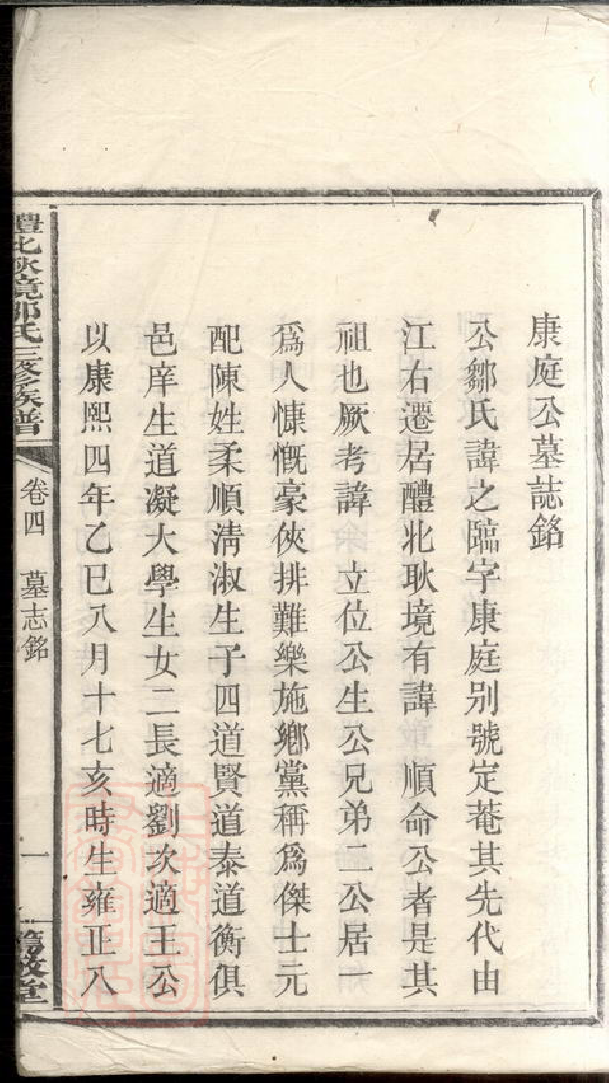 康庭公墓誌銘
公鄒氏諱之臨字康庭別號定菴其先代由
江右遷居醴北耿境有諱 順命公者是其
祖也厥考諱 立位公生公兄弟二公居一
爲人慷慨豪俠排難樂施鄉黨稱爲傑士元
配陳姓柔順淸淑生子四道賢道泰道衡俱
邑庠生道凝大學生女二長適劉次適王公
以康熙四年乙巳八月十七亥時生雍正八
醴北耿境鄒氏三修族譜
卷四 墓志銘
一